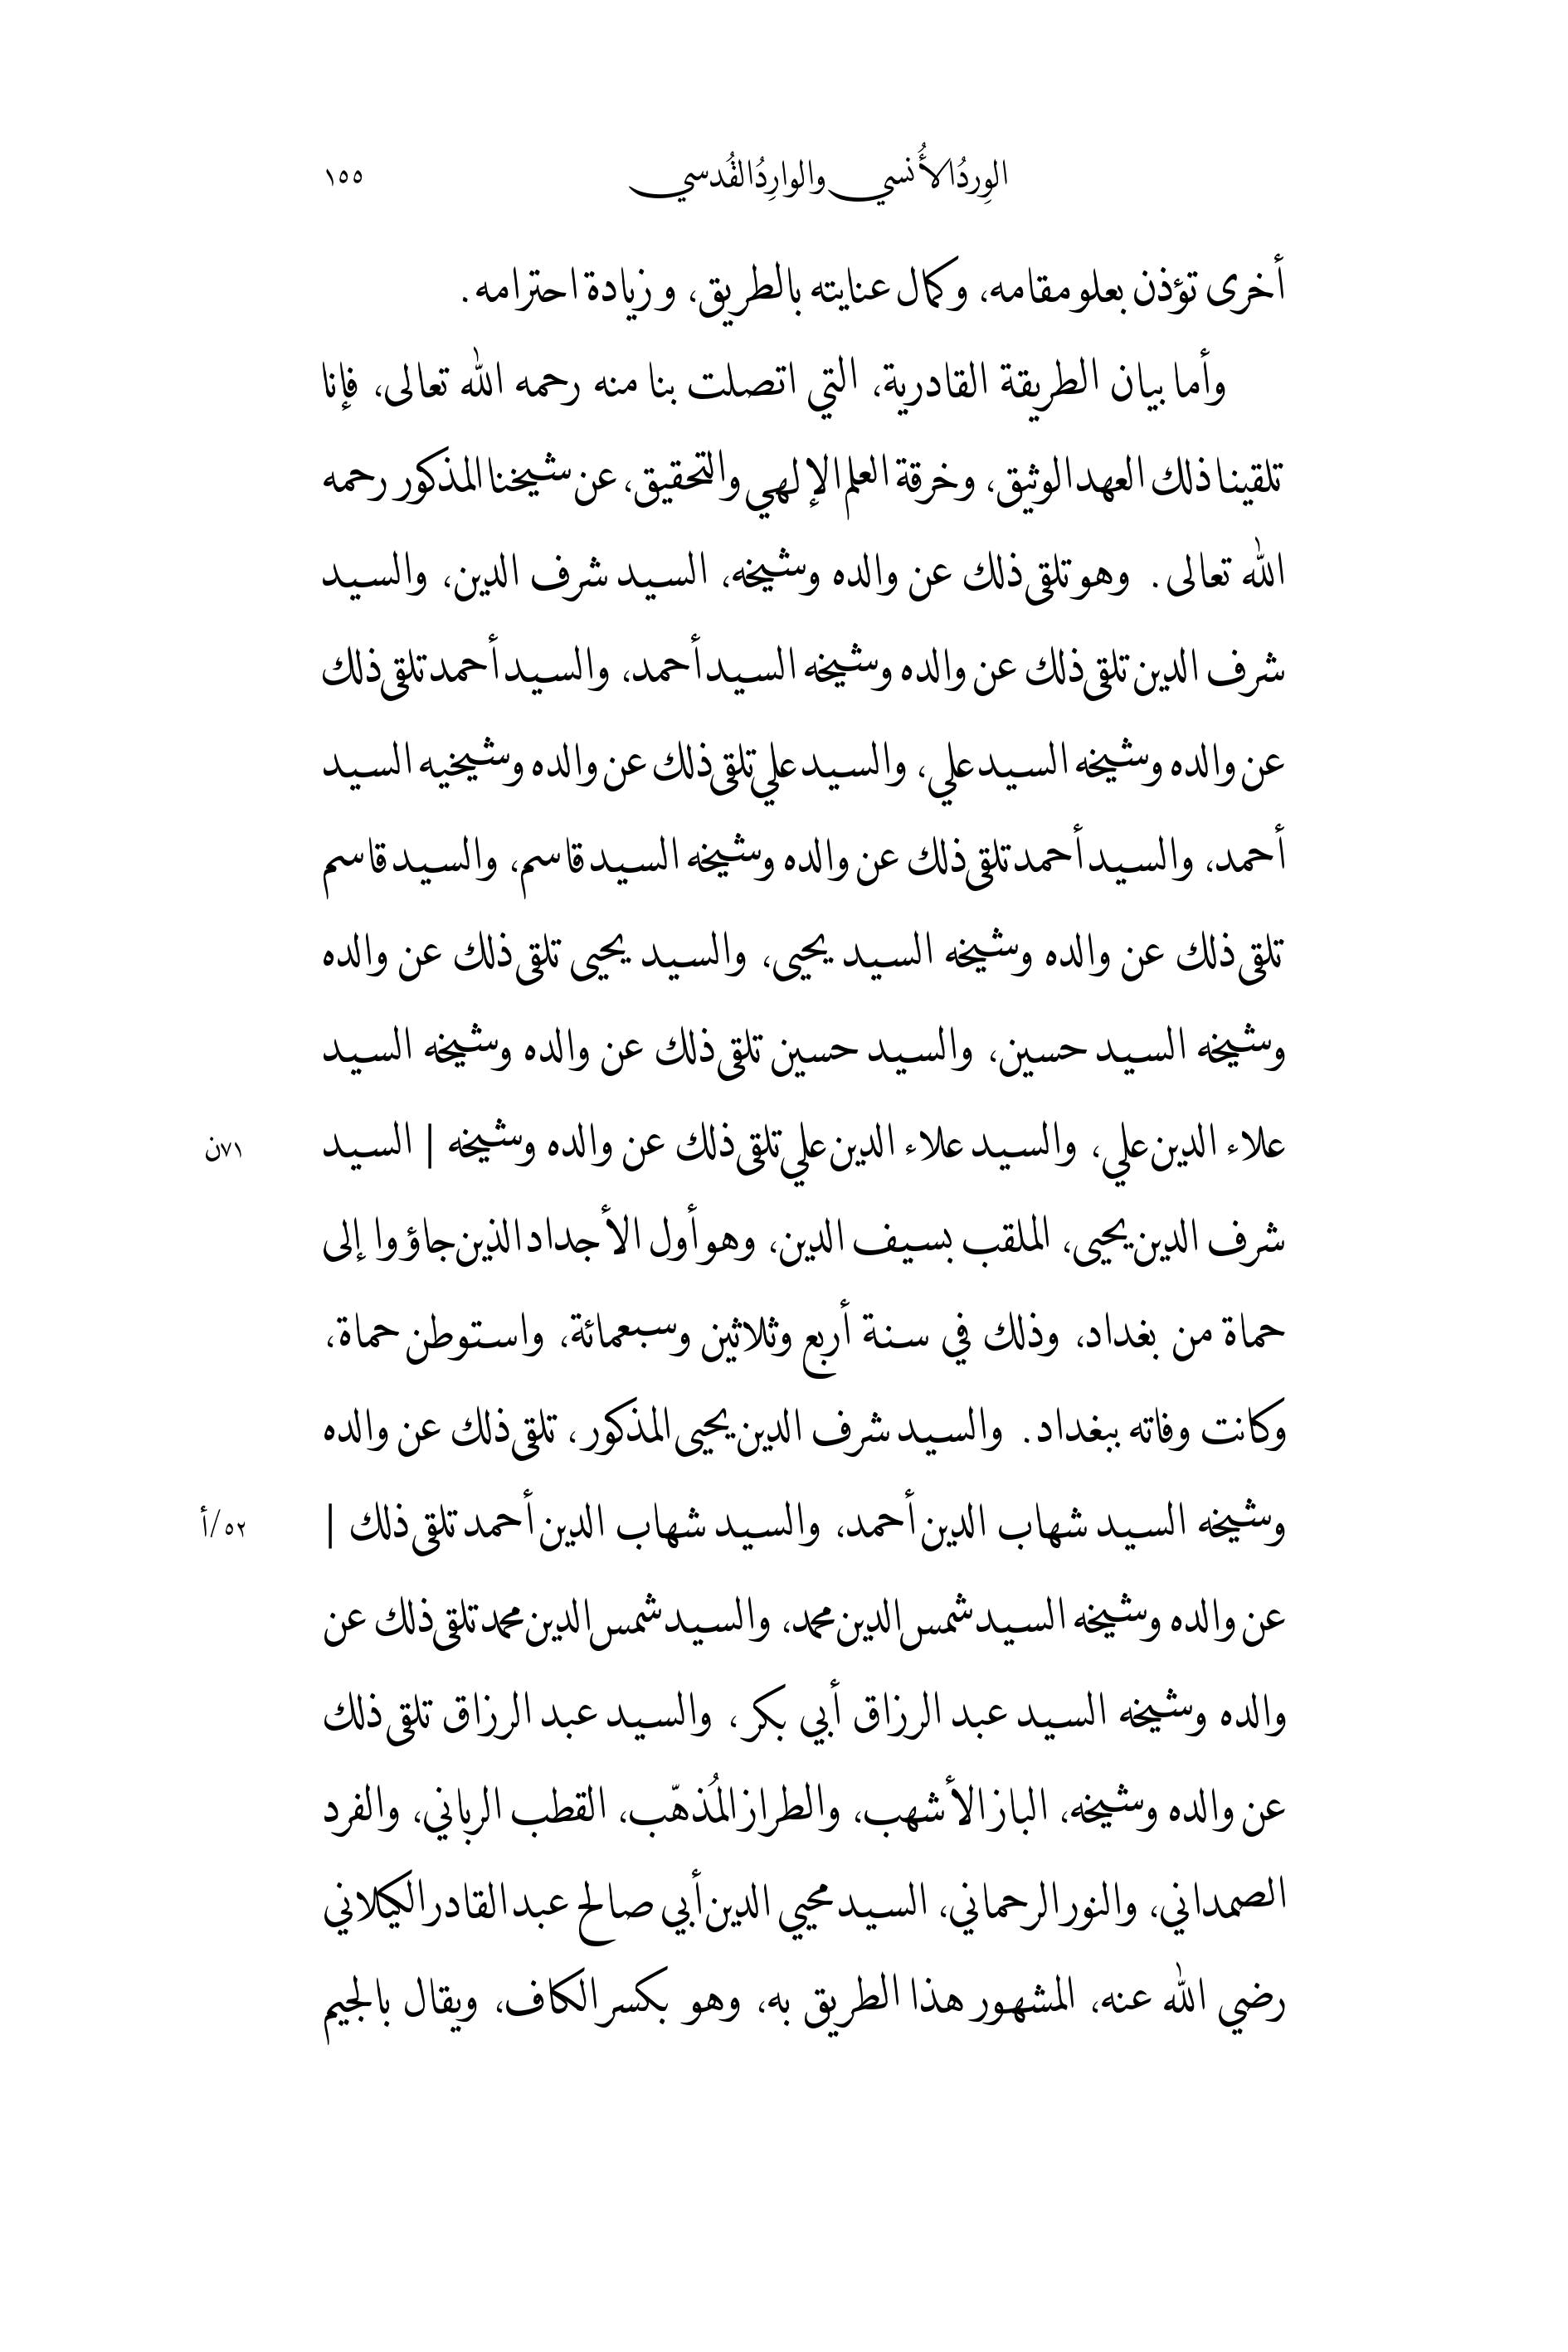 الوِردُ الأُنسي والوارِدُ القُدسي ١٥٥
أخرى تؤذن بعلو مقامه، وكمال عنايته بالطريق، وزيادة احترامه.
وأما بيان الطريقة القادرية، التي اتصلت بنا منه رحمه الله تعالى، فإنا
تلقينا ذلك العهد الوثيق، وخرقة العلم الإلهي والتحقيق، عن شيخنا المذكور رحمه
الله تعالى. وهو تلقى ذلك عن والده وشيخه، السيد شرف الدين، والسيد
شرف الدين تلقى ذلك عن والده وشيخه السيد أحمد، والسيد أحمد تلقى ذلك
عن والده وشيخه السيد علي، والسيد علي تلقى ذلك عن والده وشيخيه السيد
أحمد، والسيد أحمد تلقى ذلك عن والده وشيخه السيد قاسم، والسيد قاسم
تلقى ذلك عن والده وشيخه السيد يحيى، والسيد يحيى تلقى ذلك عن والده
وشيخه السيد حسين، والسيد حسين تلقى ذلك عن والده وشيخه السيد
علاء الدين علي، والسيد علاء الدين علي تلقى ذلك عن والده وشيخه | السيد ٧١ن
شرف الدين يحيى، الملقب بسيف الدين، وهو أول الأجداد الذين جاؤوا إلى
حماة من بغداد، وذلك في سنة أربع وثلاثين وسبعمائة، واستوطن حماة،
وكانت وفاته ببغداد. والسيد شرف الدين يحيى المذكور، تلقى ذلك عن والده
وشيخه السيد شهاب الدين أحمد، والسيد شهاب الدين أحمد تلقى ذلك | ٥٢/أ
عن والده وشيخه السيد شمس الدين محمد، والسيد شمس الدين محمد تلقى ذلك عن
والده وشيخه السيد عبد الرزاق أبي بكر، والسيد عبد الرزاق تلقى ذلك
عن والده وشيخه، الباز الأشهب، والطراز المُذهّب، القطب الرباني، والفرد
الصمداني، والنور الرحماني، السيد محيي الدين أبي صالح عبد القادر الكيلاني
رضي الله عنه، المشهور هذا الطريق به، وهو بكسر الكاف، ويقال بالجيم